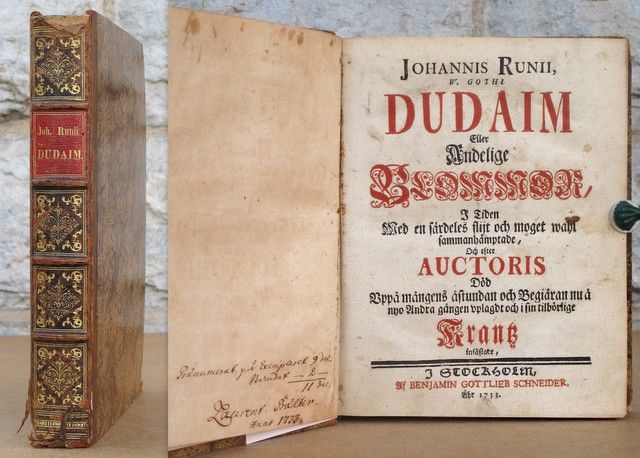 Joh. Runii
DUDAIM.
Prænumerat på Exemplaret 9 dal.
2
11 dal.
Laurent.
Anno 1733.
JOHANNIS RUNII,
W. GOTHI
DUDAIM
Eller
Andelige
BLOMMOR,
I Tiden
Med en särdeles flijt och moget wahl
sammanhämptade,
Och efter
AUCTORIS
Död
Uppå mångens åstundan och Begiäran nu å
nyo Andra gången uplagdt och i sin tilbörlige
Krantz
infästade,
I STOCKHOLM,
Af BENJAMIN GOTTLIEB SCHNEIDER.
Åhr 1733.